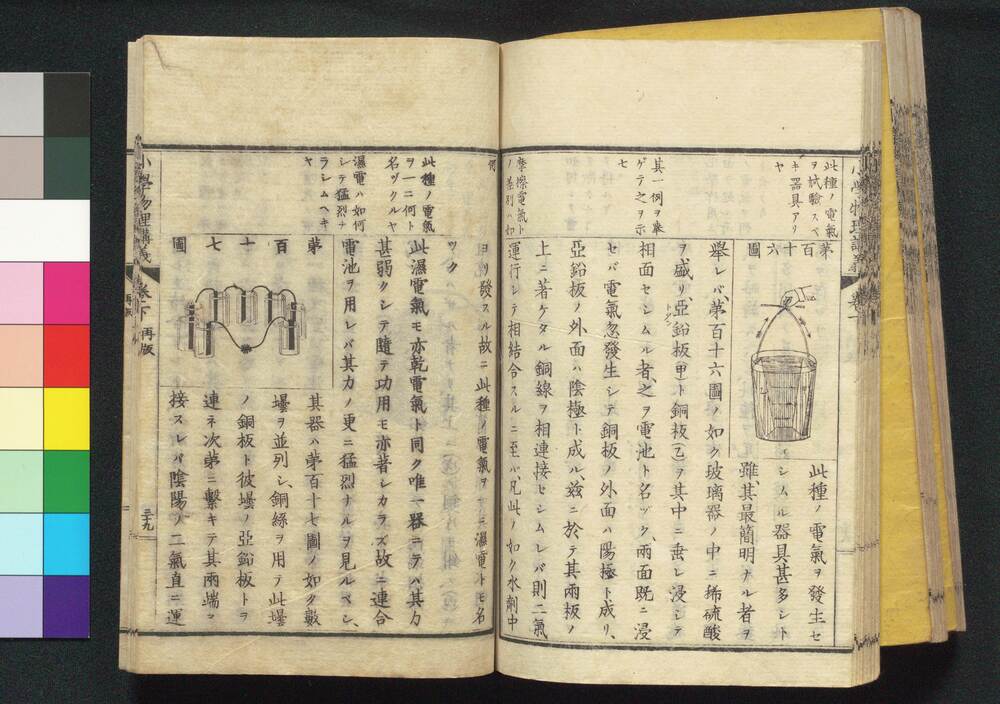 此種ノ電氣
ヲ試驗スベ
キ器具アリ
ヤ
其一例ヲ擧
ゲテ之ヲ示
セ
摩擦電氣ト
ノ差別ハ如
第
百
十
六
圖
此種ノ電氣ヲ發生セ
シムル器具甚多シト
雖、其最簡明ナル者ヲ
擧レバ、第百十六圖ノ如ク玻璃器ノ中ニ稀硫酸
ヲ盛リ、亞鉛板(甲)ト銅板(乙)ヲ其中ニ垂レ浸シテ
相面セシムル者、之ヲ電池ト名ヅク、兩面既ニ浸
セバ電氣忽發生シテ銅板ノ外面ハ陽極ト成リ、
亞鉛板ノ外面ハ陰極ト成ル、茲ニ於テ其兩板ノ
上ニ著ケタル銅線ヲ相連接セシムレバ則二氣
運行シテ相結合スルニ至ル、凡此ノ如ク水劑中
何
此種ノ電氣
ヲ一ニ何ト
名ヅクルヤ
濕電ハ如何
シテ猛烈ナ
ラシムヘキ
ヤ
ヨリ發スル故ニ此種ノ電氣ヲ一ニ濕電トモ名
ヅク
此濕電氣モ亦乾電氣ト同ク唯一器ニテハ其力
甚弱クシテ隨テ功用モ亦著シカラズ故ニ連合
電池ヲ用レバ其力ノ更ニ猛烈ナルヲ見ルベシ、
第
百
十
七
圖
其器ハ第百十七圖ノ如ク數
壜ヲ並列シ、銅線ヲ用テ此壜
ノ銅板ト彼壜ノ亞鉛板トヲ
連ネ次第ニ繫キテ其兩端ヲ
接スレバ陰陽ノ二氣直ニ運
小學物理講義
卷下
再版
三十九